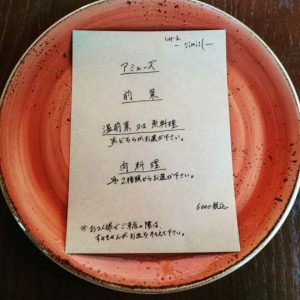 アミューズ
前菜
温前菜 又は 魚料理
※どちらかお選び下さい。
肉料理
※2種類からお選び下さい。
6000税込
※お2人様でご来店の際は、
すみませんがお皿をそろえて下さい。